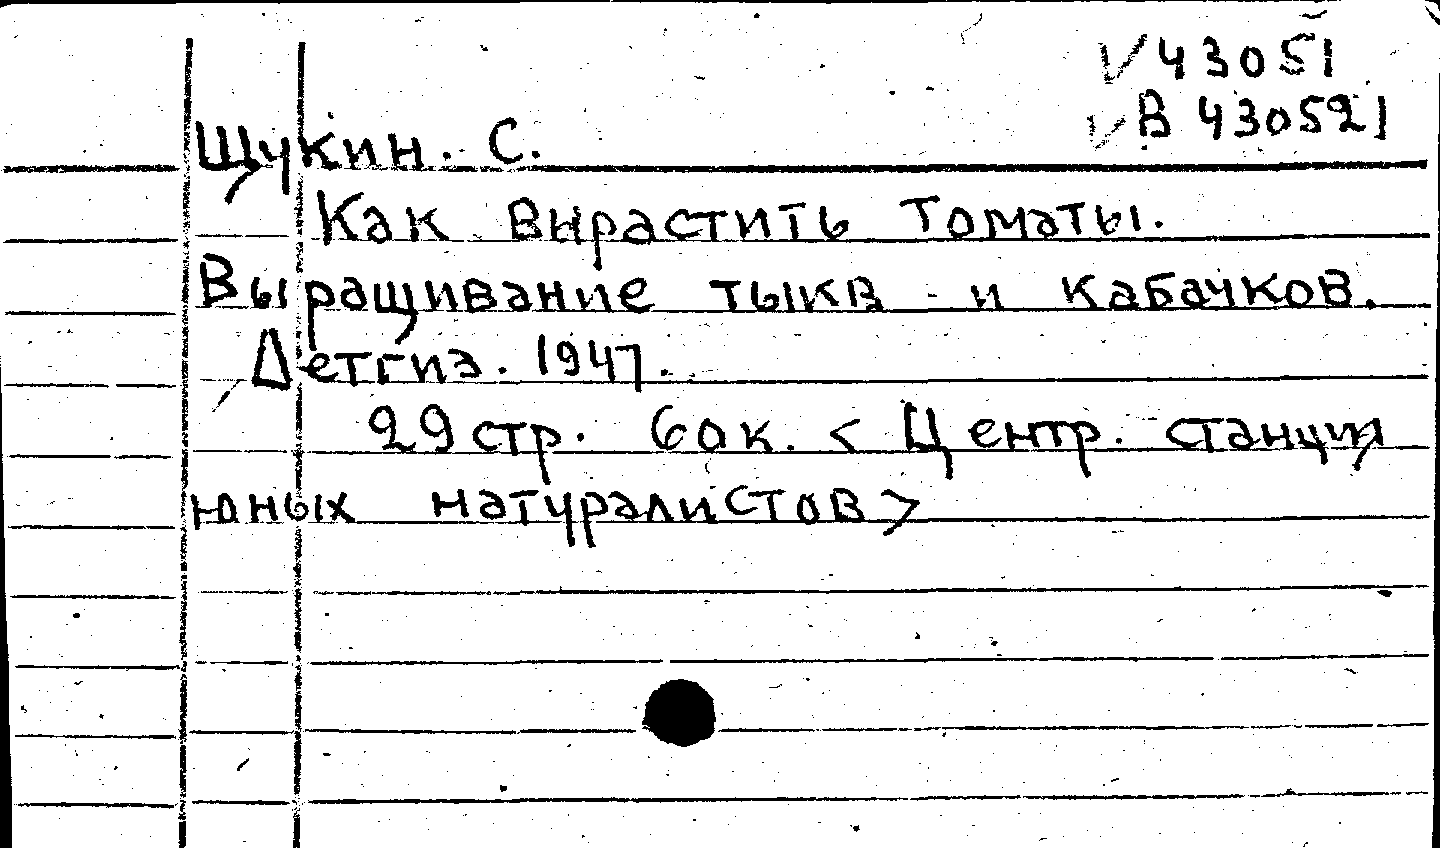 43051
В 430521
Щукин. С.
Как вырастить томаты.
Выращивание тыкв и кабачков.
Детгиз. 1947.
29 стр. 60 к. < Центр. станция
юных натуралистов >